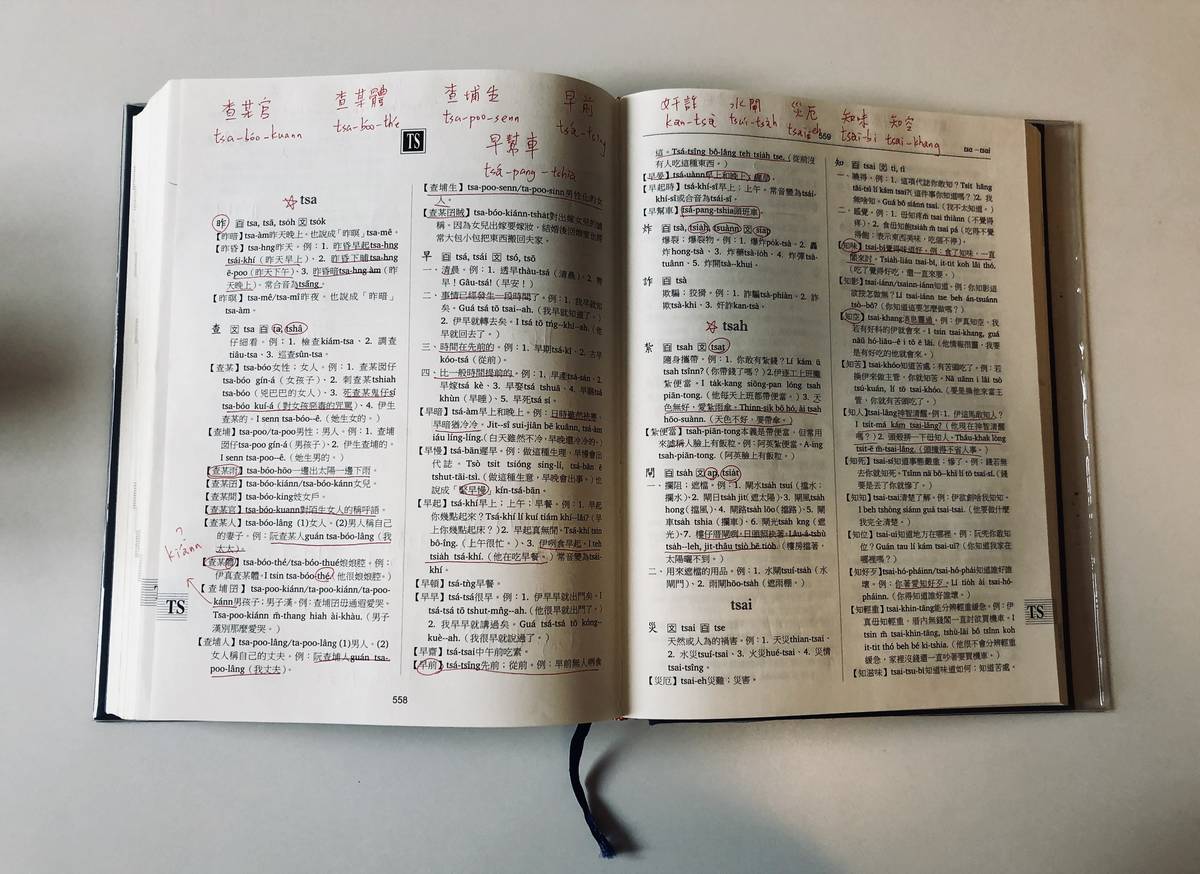 查某官
tsa-bóo-kuann
查某體
tsa-bóo-thé
查埔生
tsa-poo-senn
早前
tsá-tsîng
早幫車
tsá-pang-tshia
TS
tsa
昨 tsa, tsā, tsóh tsók
【昨暗】tsa-àm昨天晚上。也說成「昨暝」tsa-mê。
【昨昏】tsa-hng昨天。例：1. 昨昏早起tsa-hng
tsái-khí（昨天早上）、2. 昨昏下晡tsa-hng
ē-poo（昨天下午）、3. 昨昏暗tsa-hng àm（昨
天晚上）。常合音為tsăng。
【昨暝】tsa-mê/tsa-mî昨夜。也說成「昨暗」
tsa-àm。
查 tsa ta, tshâ
仔細看。例：1. 檢查kiám-tsa、2. 調查
tiâu-tsa、3. 巡查sûn-tsa。
【查某】tsa-bóo女性；女人。例：1. 查某囡仔
tsa-bóo gín-á（女孩子）、2. 刺查某tshiah
tsa-bóo（兇巴巴的女人）、3. 死查某鬼仔sí
tsa-bóo kuí-á（對女孩惡毒的咒罵）、4. 伊生
查某的。I senn tsa-bóo--ê.（她生女的。）
【查埔】tsa-poo/ta-poo男性；男人。例：1. 查埔
囡仔tsa-poo gín-á（男孩子）、2. 伊生查埔的。
I senn tsa-poo--ê.（她生男的。）
【查某雨】tsa-bóo-hōo一邊出太陽一邊下雨。
【查某囝】tsa-bóo-kiánn/tsa-bóo-kánn女兒。
【查某間】tsa-bóo-king妓女戶。
【查某官】tsa-bóo-kuann對陌生女人的稱呼語。
【查某人】tsa-bóo-lâng (1)女人。(2)男人稱自己
的妻子。例：阮查某人guán tsa-bóo-lâng（我
太太）。
?
kiánn
【查某體】tsa-bóo-thé/tsa-bóo-thué娘娘腔。例：
伊真查某體。I tsin tsa-bóo-thé（他很娘娘腔。）
【查埔囝】tsa-poo-kiánn/ta-poo-kiánn/ta-poo-
kánn男孩子；男子漢。例：查埔囝毋通遐愛哭。
Tsa-poo-kiánn m̄ thang hiah ài-khàu.（男子
漢別那麼愛哭。）
【查埔人】tsa-poo-lâng/ta-poo-lâng (1)男人。(2)
女人稱自己的丈夫。例：阮查埔人guán tsa-
poo-lâng（我丈夫）。
TS
558
【查埔生】tsa-poo-senn/ta-poo-sinn男性化的女
人。
【查某囝賊】tsa-bóo-kiánn-tshat對出嫁女兒的
稱。因為女兒出嫁要嫁妝，結婚後回娘家也
常大包小包把東西搬回夫家。
早 tsá, tsái tsó, tsō
一、清晨。例：1. 透早thàu-tsá（清晨）、2.
早！Gâu-tsá!（早安！）
二、事情已經發生一段時間了。例：1. 我早就知
矣。Guá tsá tō tsai-ah.（我早就知道了。）
2. 伊早就轉去矣。I tsá tō tńg--khì-ah.（他
早就回去了。）
三、時間在先前的。例：1. 早期tsá-kî、2. 古早
kóo-tsá（從前）。
四、比一般時間提前的。例：1. 早產tsá-sán、2.
早嫁tsá kè、3. 早娶tsá tshuā、4. 早睏tsá
khùn（早睡）、5. 早死tsá sí。
【早暗】tsá-àm早上和晚上。例：日時雖然袂寒，
早暗猶冷冷。Jit--sî sui-jiân bē kuânn, tsá-àm
iáu líng-líng.（白天雖然不冷，早晚還冷冷的。）
【早慢】tsá-bān遲早。例：做這種生理，早慢會出
代誌。Tsò tsit tsióng sing-lí, tsá-bān ē
tshut-tāi-tsì.（做這種生意，早晚會出事。）也
說成「緊早慢」kín-tsá-bān。
【早起】tsá-khí早上；上午；早餐。例：1. 早起
你幾點起來？Tsá-khí lí kuí tiám khí--lâi?（早
上你幾點起床？）2. 早起真無閒。Tsá-khí tsin
bô-îng.（上午很忙。）、3. 伊咧食早起。I teh
tsiah tsá-khí.（他在吃早餐。）常音變為tsái-
khí。
【早頓】tsá-tǹg早餐。
【早早】tsá-tsá很早。例：1. 伊早早就出門矣。I
tsá-tsá tō tshut-mn̂g--ah.（他很早就出門了。）
2. 我早早就講過矣。Guá tsá-tsá tō kóng-
kuè--ah.（我很早就說過了。）
【早齋】tsá-tsai中午前吃素。
【早前】tsá-tsîng先前；從前。例：早前無人咧食
奸詐
kan-tsà
水閘
tsuí-tsàh
災厄
tsai-eh
知味
tsai-bī
知空
tsai-khang
559
tsa－tsai
這。Tsá-tsîng bô-lâng teh tsiah tse.（從前沒
有人吃這種東西。）
【早晏】tsá-uànn早上和晚上；遲早。
【早起時】tsá-khí-sî早上；上午。常音變為tsái-
khí-sî或合音為tsái-sî。
【早幫車】tsá-pang-tshia頭班車。
炸 tsà, tsiah, tsuànn siap
爆裂；爆裂物。例：1. 爆炸pòk-tsà、2. 轟
炸hong-tsà、3. 炸藥tsà-iòh、4. 炸彈tsà-
tuânn、5. 炸開tsà--khui。
詐 tsà
欺騙；狡猾。例：1. 詐騙tsà-phiàn、2. 詐
欺tsà-khi、3. 奸詐kan-tsà。
tsah
紮 tsah tsat
隨身攜帶。例：1. 你敢有紮錢？Lí kám ū
tsah tsînn?（你帶錢了嗎？）2.伊逐工上班攏
紮便當。I ta̍k-kang siōng-pan lóng tsah
piān-tong.（他每天上班都帶便當。）3. 天
色無好，愛紮雨傘。Thinn-sik bô hó, ài tsah
hōo-suànn.（天色不好，要帶傘。）
【紮便當】tsah-piān-tong本義是帶便當，但常用
來謔稱人臉上有飯粒。例：阿英紮便當。A-ing
tsah-piān-tong.（阿英臉上有飯粒。）
閘 tsa̍h ap, tsia̍t
一、攔阻；遮擋。例：1. 閘水tsa̍h tsuí（擋水；
攔水）、2. 閘日tsa̍h ji̍t（遮太陽）、3. 閘風tsa̍h
hong（擋風）、4. 閘路tsa̍h lōo（擋路）、5. 閘
車tsa̍h tshia（攔車）、6. 閘光tsa̍h kng（遮
光）、7. 樓仔厝閘咧，日頭照袂著。Lâu-á-tshù
tsa̍h--leh, ji̍t-thâu tsiò bē tio̍h.（樓房擋著，
太陽曬不到。）
二、用來遮擋的用品。例：1. 水閘tsuí-tsa̍h（水
閘門）、2. 雨閘hōo-tsa̍h（遮雨棚。）
tsai
災 tsai tse
天然或人為的禍害。例：1. 天災thian-tsai、
2. 水災tsuí-tsai、3. 火災hué-tsai、4. 災情
tsai-tsîng。
【災厄】tsai-eh災難；災害。
知 tsai ti, tì
一、曉得。例：1. 這項代誌你敢知？Tsit hāng
tāi-tsì lí kám tsai?（這件事你知道嗎？）2. 我
無啥知。Guá bô siánn tsai.（我不太知道。）
二、感覺。例：1. 毋知疼m̄ tsai thiànn（不覺得
疼）、2. 食毋知飽tsia̍h m̄ tsai pá（吃得不覺
得飽；表示東西美味，吃個不停）。
【知味】tsai-bī覺得味道好。例：食了知味，一直
閣來討。Tsia̍h-liáu tsai-bī, it-ti̍t koh lâi thó.
（吃了覺得好吃，還一直來要。）
【知影】tsai-iánn/tsainn-iánn知道。例：你知影這
欲按怎做無？Lí tsai-iánn tse beh án-tsuánn
tsò--bô?（你知道這要怎麼做嗎？）
【知空】tsai-khang消息靈通。例：伊真知空，我
若有好料的伊就會來。I tsin tsai-khang, guá
nā ū hó-liāu--ê i tō ē lâi.（他情報很靈，我要
是有好吃的他就會來。）
【知苦】tsai-khóo知道苦處；有苦頭吃了。例：若
換伊來做主管，你就知苦。Nā uānn i lâi tsò
tsú-kuán, lí tō tsai-khóo.（要是換他來當主
管，你就有苦頭吃了。）
【知人】tsai-lâng神智清醒。例：1. 伊這馬敢知人？
I tsit-má kám tsai-lâng?（他現在神智清醒
嗎？）2. 頭殼挵一下毋知人。Thâu-khak lòng
tsi̍t-ē m̄ tsai-lâng.（頭撞得不省人事。）
【知死】tsai-sí知道事態嚴重；慘了。例：錢若無
去你就知死。Tsînn nā bô--khì lí tō tsai-sí.（錢
要是丟了你就慘了。）
【知知】tsai-tsai清楚了解。例：伊欲創啥我知知。
I beh tshòng siánn guá tsai-tsai.（他要做什麼
我完全清楚。）
【知位】tsai-uī知道地方在哪裡。例：阮兜你敢知
位？Guán tau lí kám tsai-uī?（你知道我家在
哪裡嗎？）
【知好歹】tsai-hó-pháinn/tsai-hó-phái知道誰好誰
壞。例：你著愛知好歹。Lí tio̍h ài tsai-hó-
pháinn.（你得知道誰好誰壞。）
【知輕重】tsai-khin-tāng能分辨輕重緩急。例：伊
真毋知輕重，厝內無錢閣一直討欲買機車。I
tsin m̄ tsai-khin-tāng, tshù-lāi bô tsînn koh
it-ti̍t thó beh bé ki-tshia.（他很不會分辨輕重
緩急，家裡沒錢還一直吵著要買機車。）
【知滋味】tsai-tsu-bī知道味道如何；知道苦處。
TS